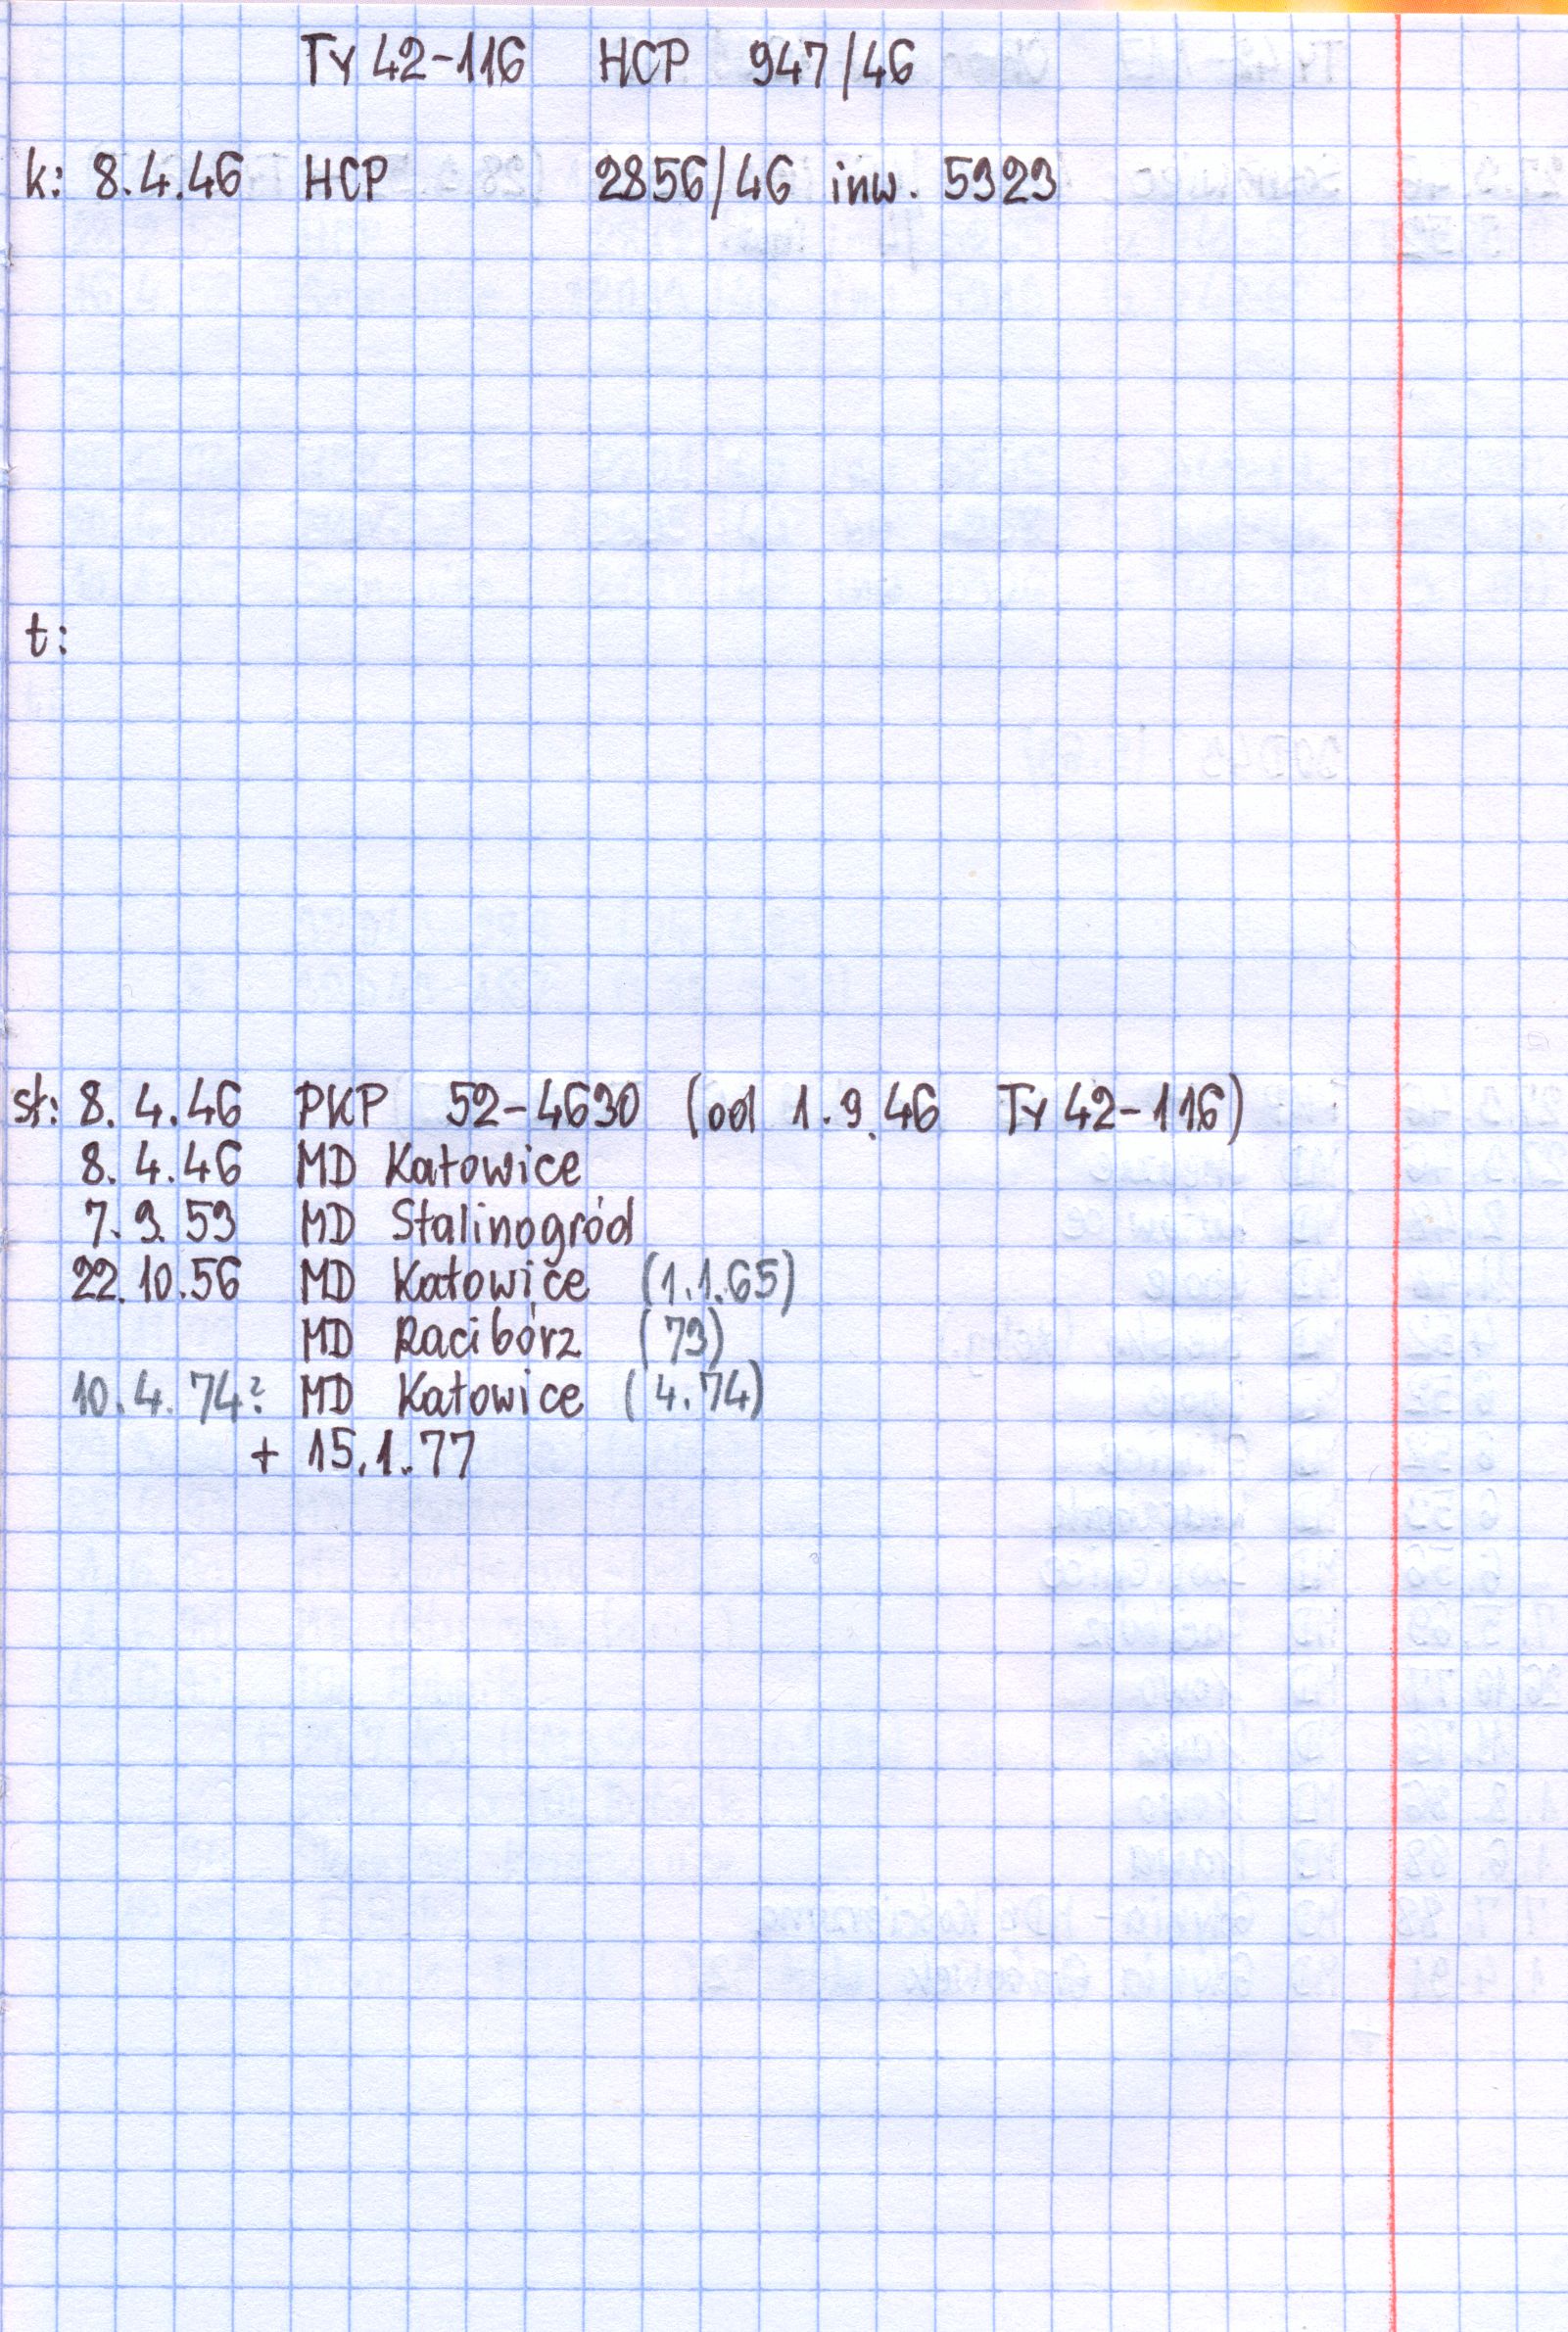 Ty 42-116 HCP 947/46
k: 8.4.46 HCP 2856/46 inw. 5323
t:
st: 8.4.46 PKP 52-4630 (od 1.9.46 Ty 42-116)
8.4.46 MD Katowice
7.3.53 MD Stalinogród
22.10.56 MD Katowice (1.1.65)
MD Racibórz (73)
10.4.74? MD Katowice (4.74)
+ 15.1.77